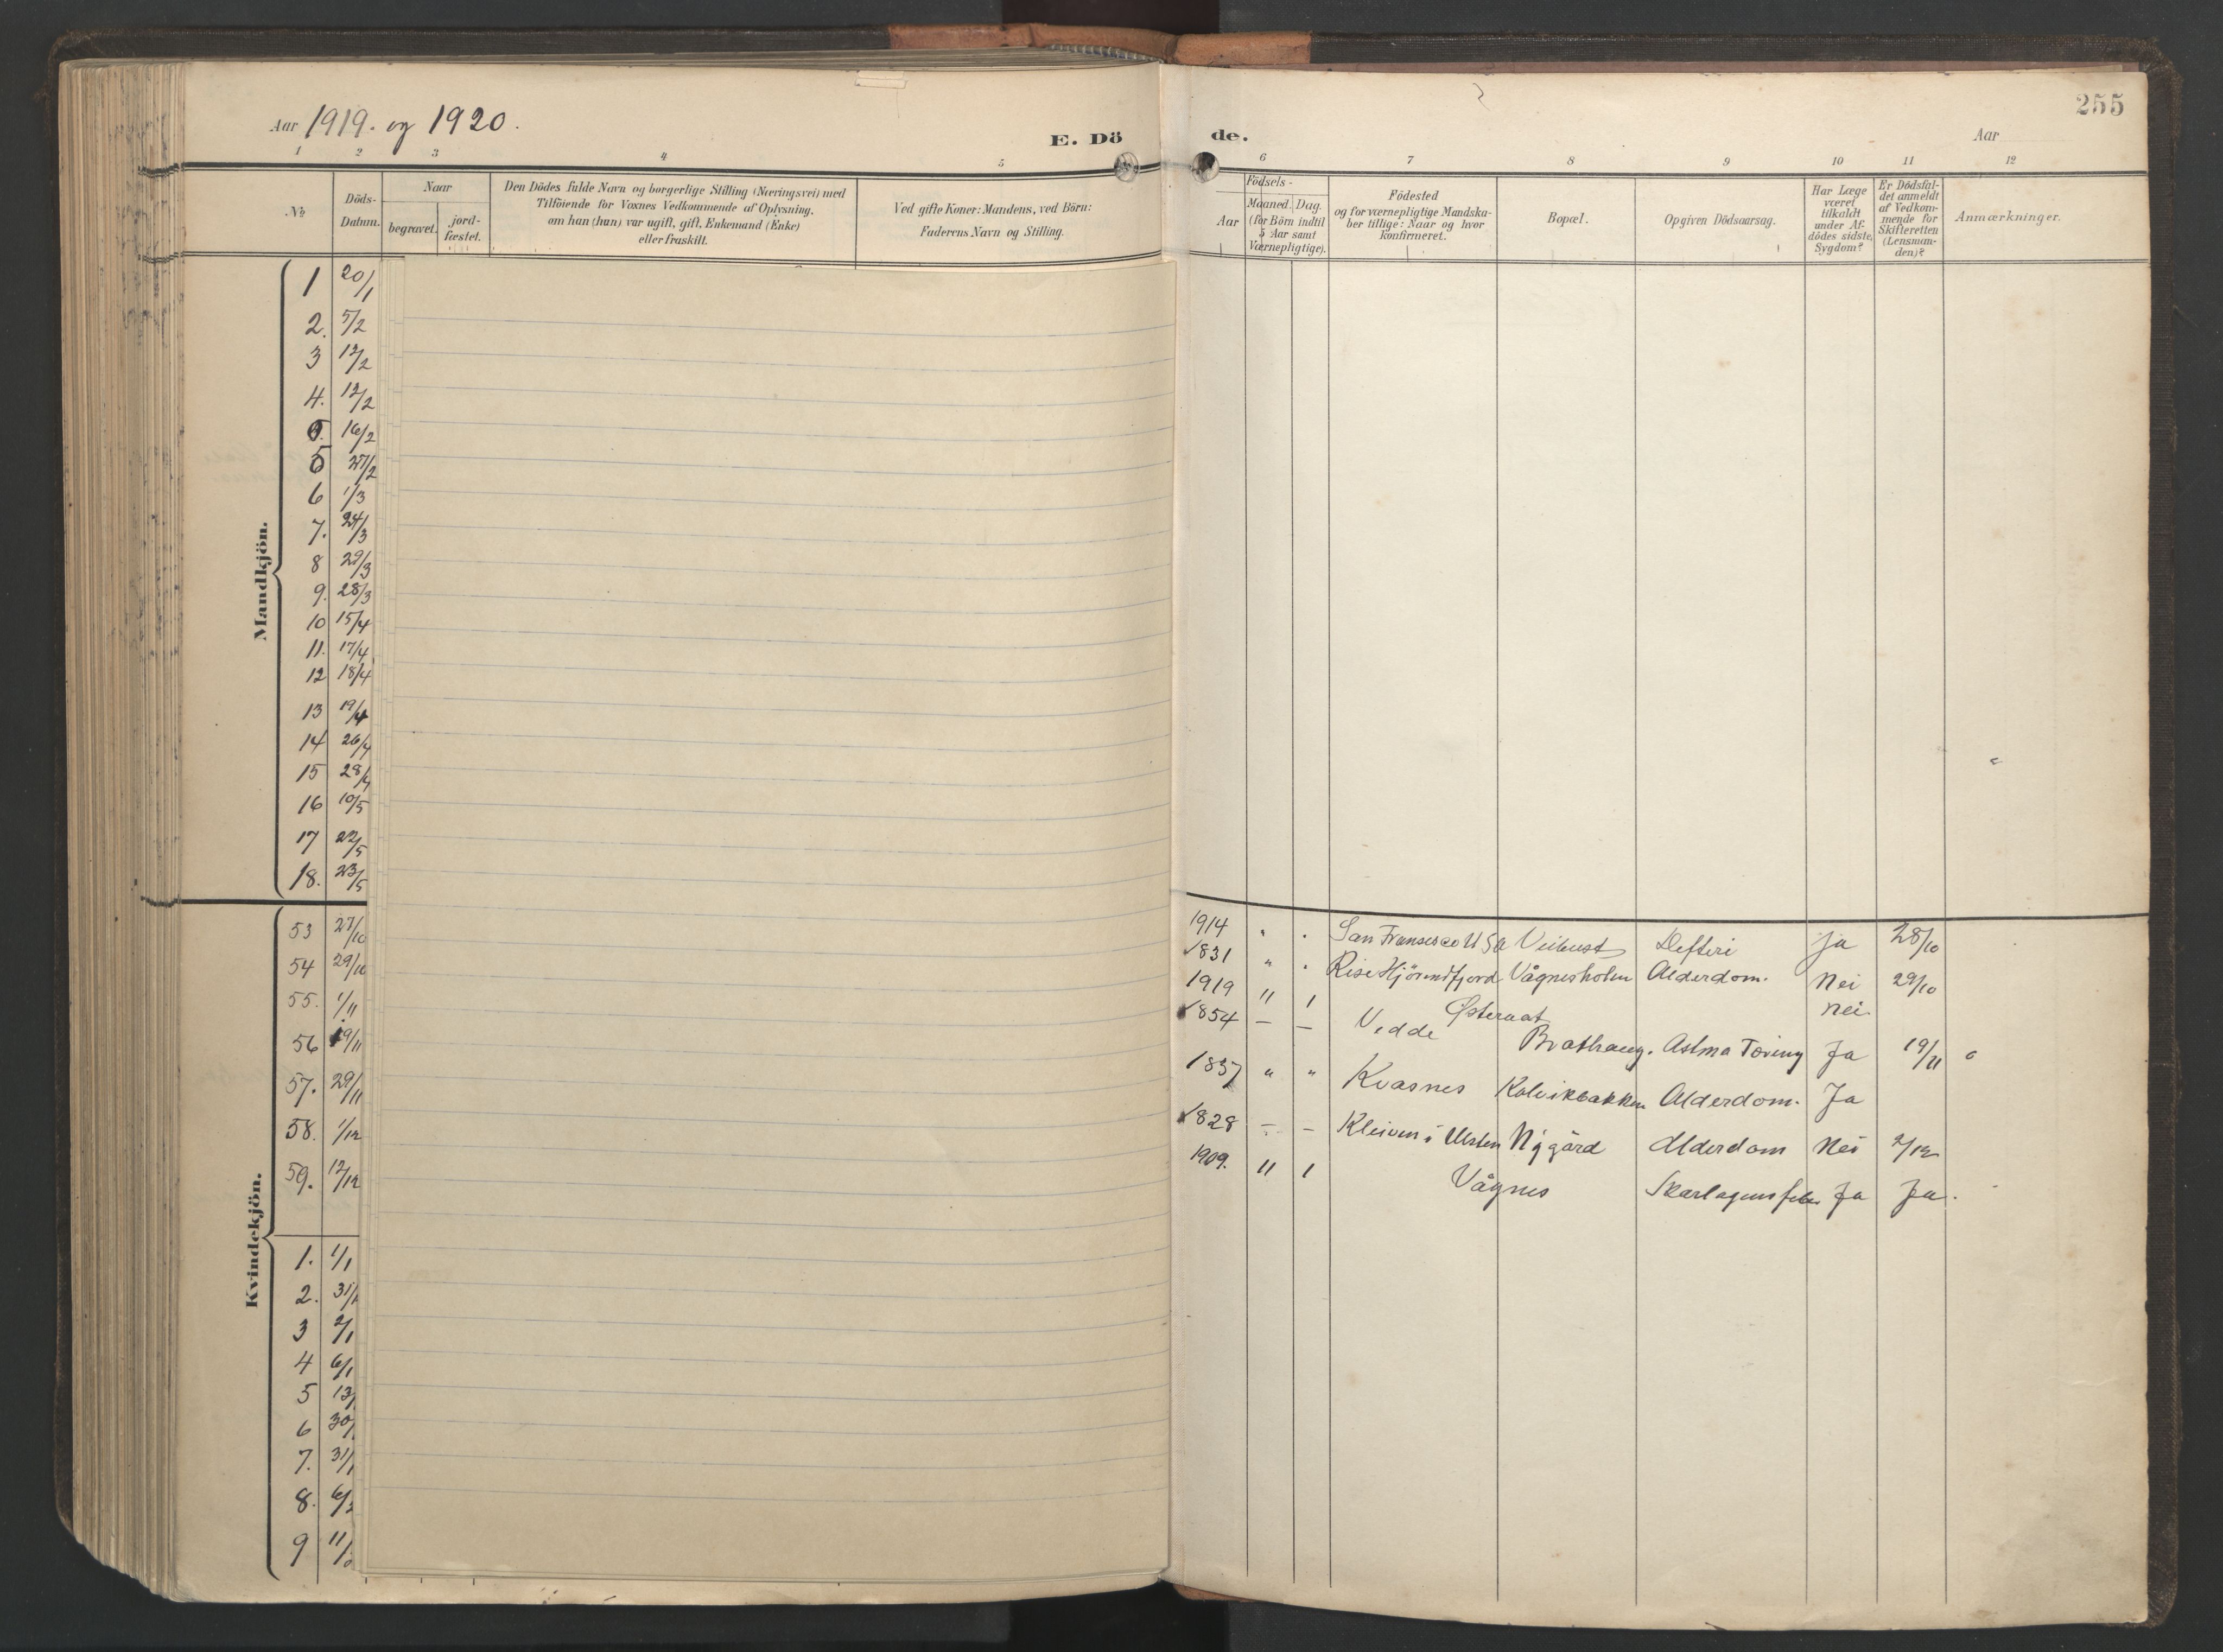 255
Aar 1919. og 1920.
E. Dö de.
Aar
1 2 3 4 5 6 7 8 9 10 11 12
№
Döds-
Datum.
Naar
begravet.
jord-
fæstet.
Den Dödes fulde Navn og borgerlige Stilling (Næringsvei) med
Tilföiende for Voxnes Vedkommende af Oplysning,
om han (hun) var ugift, gift, Enkemand (Enke)
eller fraskilt.
Ved gifte Koner: Mandens, ved Börn:
Faderens Navn og Stilling.
Födsels-
Aar
Maaned. Dag.
(for Börn indtil
5 Aar samt
Værnepligtige).
Födested
og for værnepligtige Mandska-
ber tillige: Naar og hvor
konfirmeret.
Bopæl.
Opgiven Dödsaarsag.
Har Læge
været
tilkaldt
under Af-
dödes sidste
Sygdom?
Er Dödsfal-
det anmeldt
af Vedkom-
mende for
Skifteretten
(Lensman-
den)?
Anmærkninger.
Mandkjön.
1 20/1
2. 5/2
3 12/2
4. 12/2
16/2
5 27/2
6 1/3
7. 24/3
8 29/3
9. 28/3
10 15/4
11. 17/4
12 18/4
13 19/4
14 26/4
15 28/4
16 10/5
17 22/5
18. 23/5
Kvindekjön.
53 27/10 1914 " " San Fransesco USA Veibust Defteri Ja 28/10
54 29/10 1831 " " Rise Hjörundfjord Vågnesholm Alderdom. Nei 29/10
55. 1/11 1919 11 1 Østernat nei
56 19/11 1854 — — Vedde Brathaug. Astma Tæring Ja 19/11
57. 29/11 1837 " " Kvasnes Kolvikbakken Alderdom. Ja
58. 1/12 1828 — — Kleiven i Ulsten Nygård Alderdom Nei 2/12
59. 12/12 1909. 11 1 Vågnes Skarlagensfeber Ja Ja.
1. 1/1
2. 31/1
3 2/1
4 6/1
5 13/
6 30/
7. 31/1
8. 6/2
9 11/